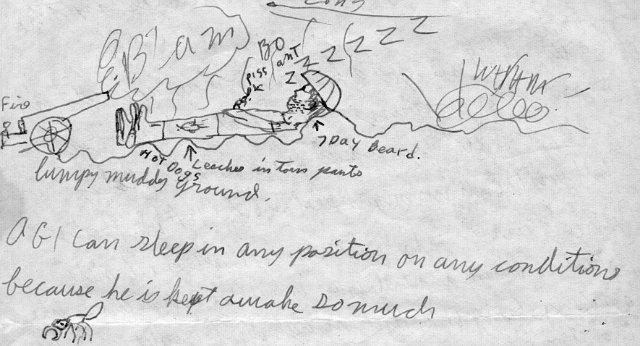 BLam
BO
Z Z Z Z Z Z
piss
ant
Fire
7 Day Beard.
Hot Dogs
Leaches in torn pants
lumpy muddy ground.
A GI can sleep in any position on any conditions
because he is kept awake so much